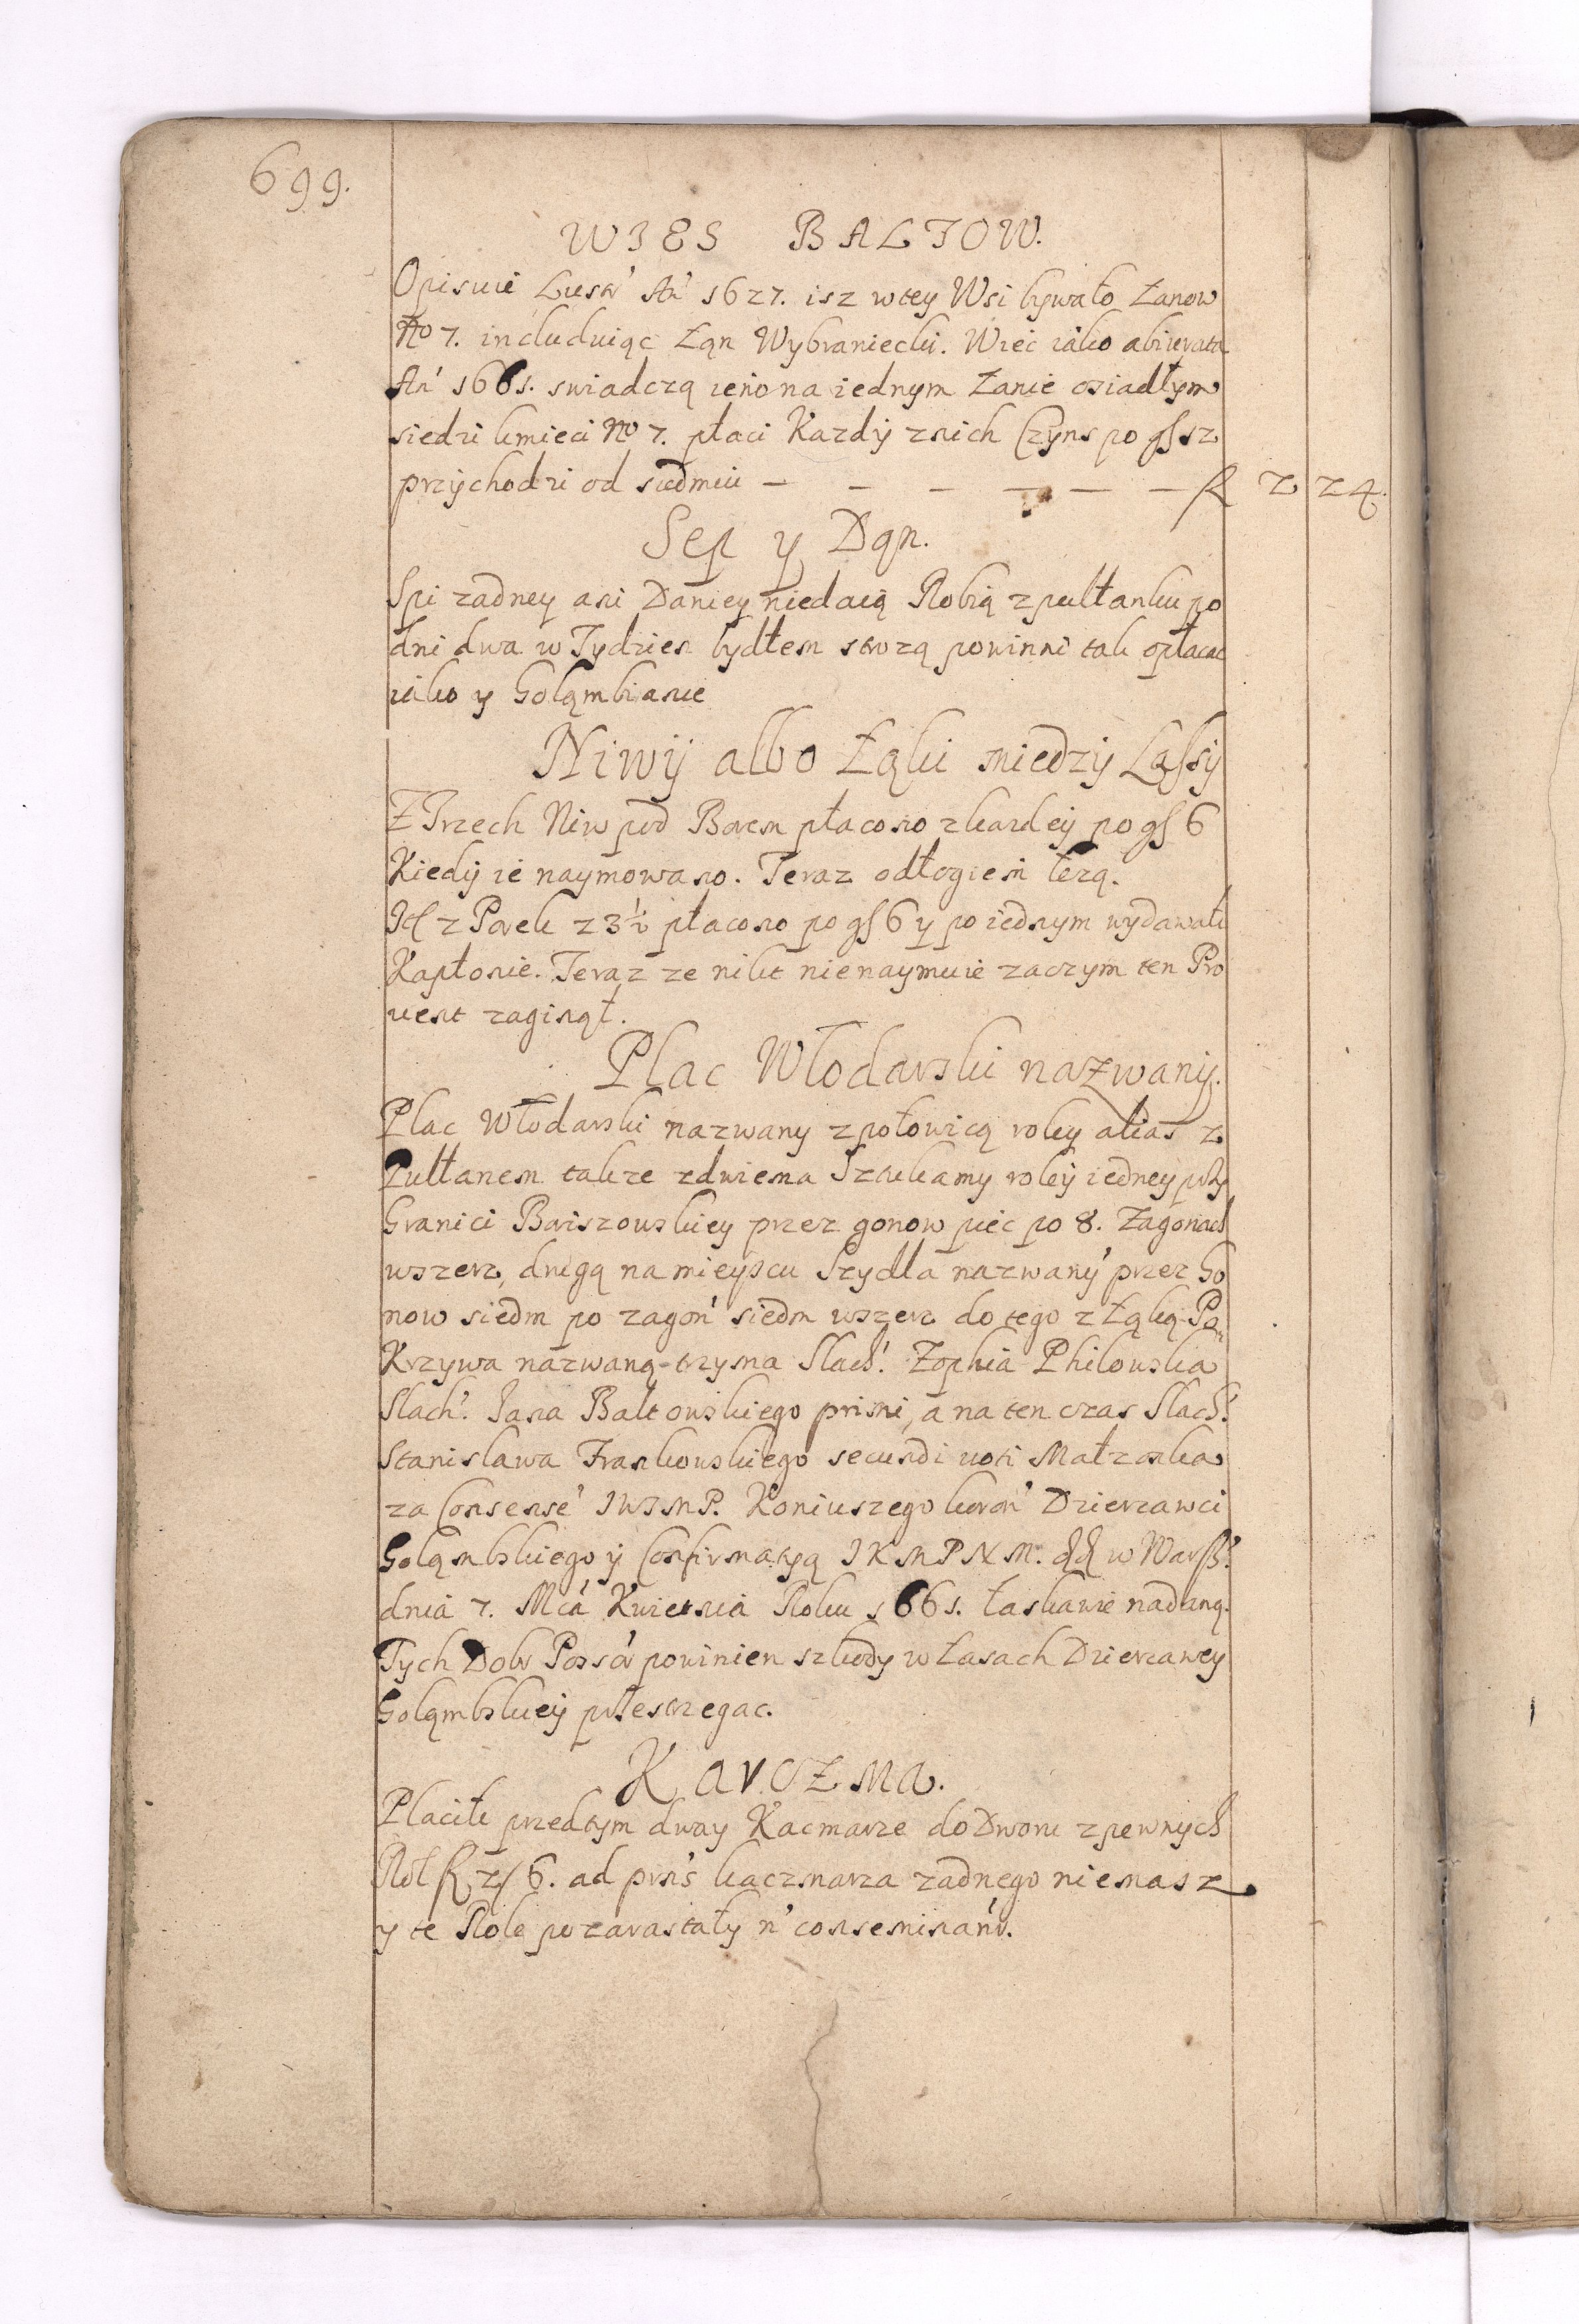 699.
WIES BALTOW.
Opisuie Lustr' An' 1627. isz wtey Wsi bywało Łanow
No 7. includuiąc Łąn Wybraniecki. Więc iako abiurata
An' 1661. swiadczą ieno na iednym Łanie osiadłym
siedzi kmieci No 7. płaci Kazdÿ znich Czÿns po gſ 12
przÿchodzi od siedmiu — — — — — — — R 2 24.
Sep y Dąn.
Spi zadney ani Daniey niedaią Robią zpułłanku po
dni dwa w Tydzien bydłem stozą powinni tak opłacac
iako y Gołąmbianie
Niwÿ albo Łąki miedzÿ Laſsÿ
Z Trzech Niw pod Borem płacono zkazdeÿ po gſ 6
Kiedÿ ie naymowano. Teraz odłogiem lezą.
It z Parek z 3½ płacono po gſ 6 y po iednym wydawali
Kapłonie. Teraz ze nikt nienaymuie zaczym ten Pro
uent zaginął.
Plac Włodarski nazwanÿ.
Plac Włodarski nazwany zpołowicą roley alias z
Pułłanem takze zdwiema Sztukamy roleÿ iedney przy
Granici Bariszowskiey przez gonow pięc po 8. Zagonach
wszerz, drugą na mieyscu Szydła nazwany' przez Go
now siedm po zagon' siedm wszerz do tego z Łąką Po
Krzywa nazwaną trzyma Slach': Zophia Philowska
Slach': Jana Baltowskiego primi, a na ten czas Slach':
Stanislawa Frankowskiego secundi uoti Małzonka
za Consense' JWJMP. Koniuszego koron' Dzierzawci
Gołąmbskiego ÿ Confirmacyą JKMPNM. dd w Warſz':
dnia 7. Mca' Kwietnia Roku 1661. łaskawie nadaną.
Tych Dobr Possor' powinien szkody w Lasach Dzierzawey
Gołąmbskieÿ przestrzegac.
KARCZMA.
Placili przedtym dway Kacmarze do Dworu zpewnych
Rol R 2/6. ad prns' kaczmarza zadnego niemasz
y te Role pozarastały n' conseminant'.